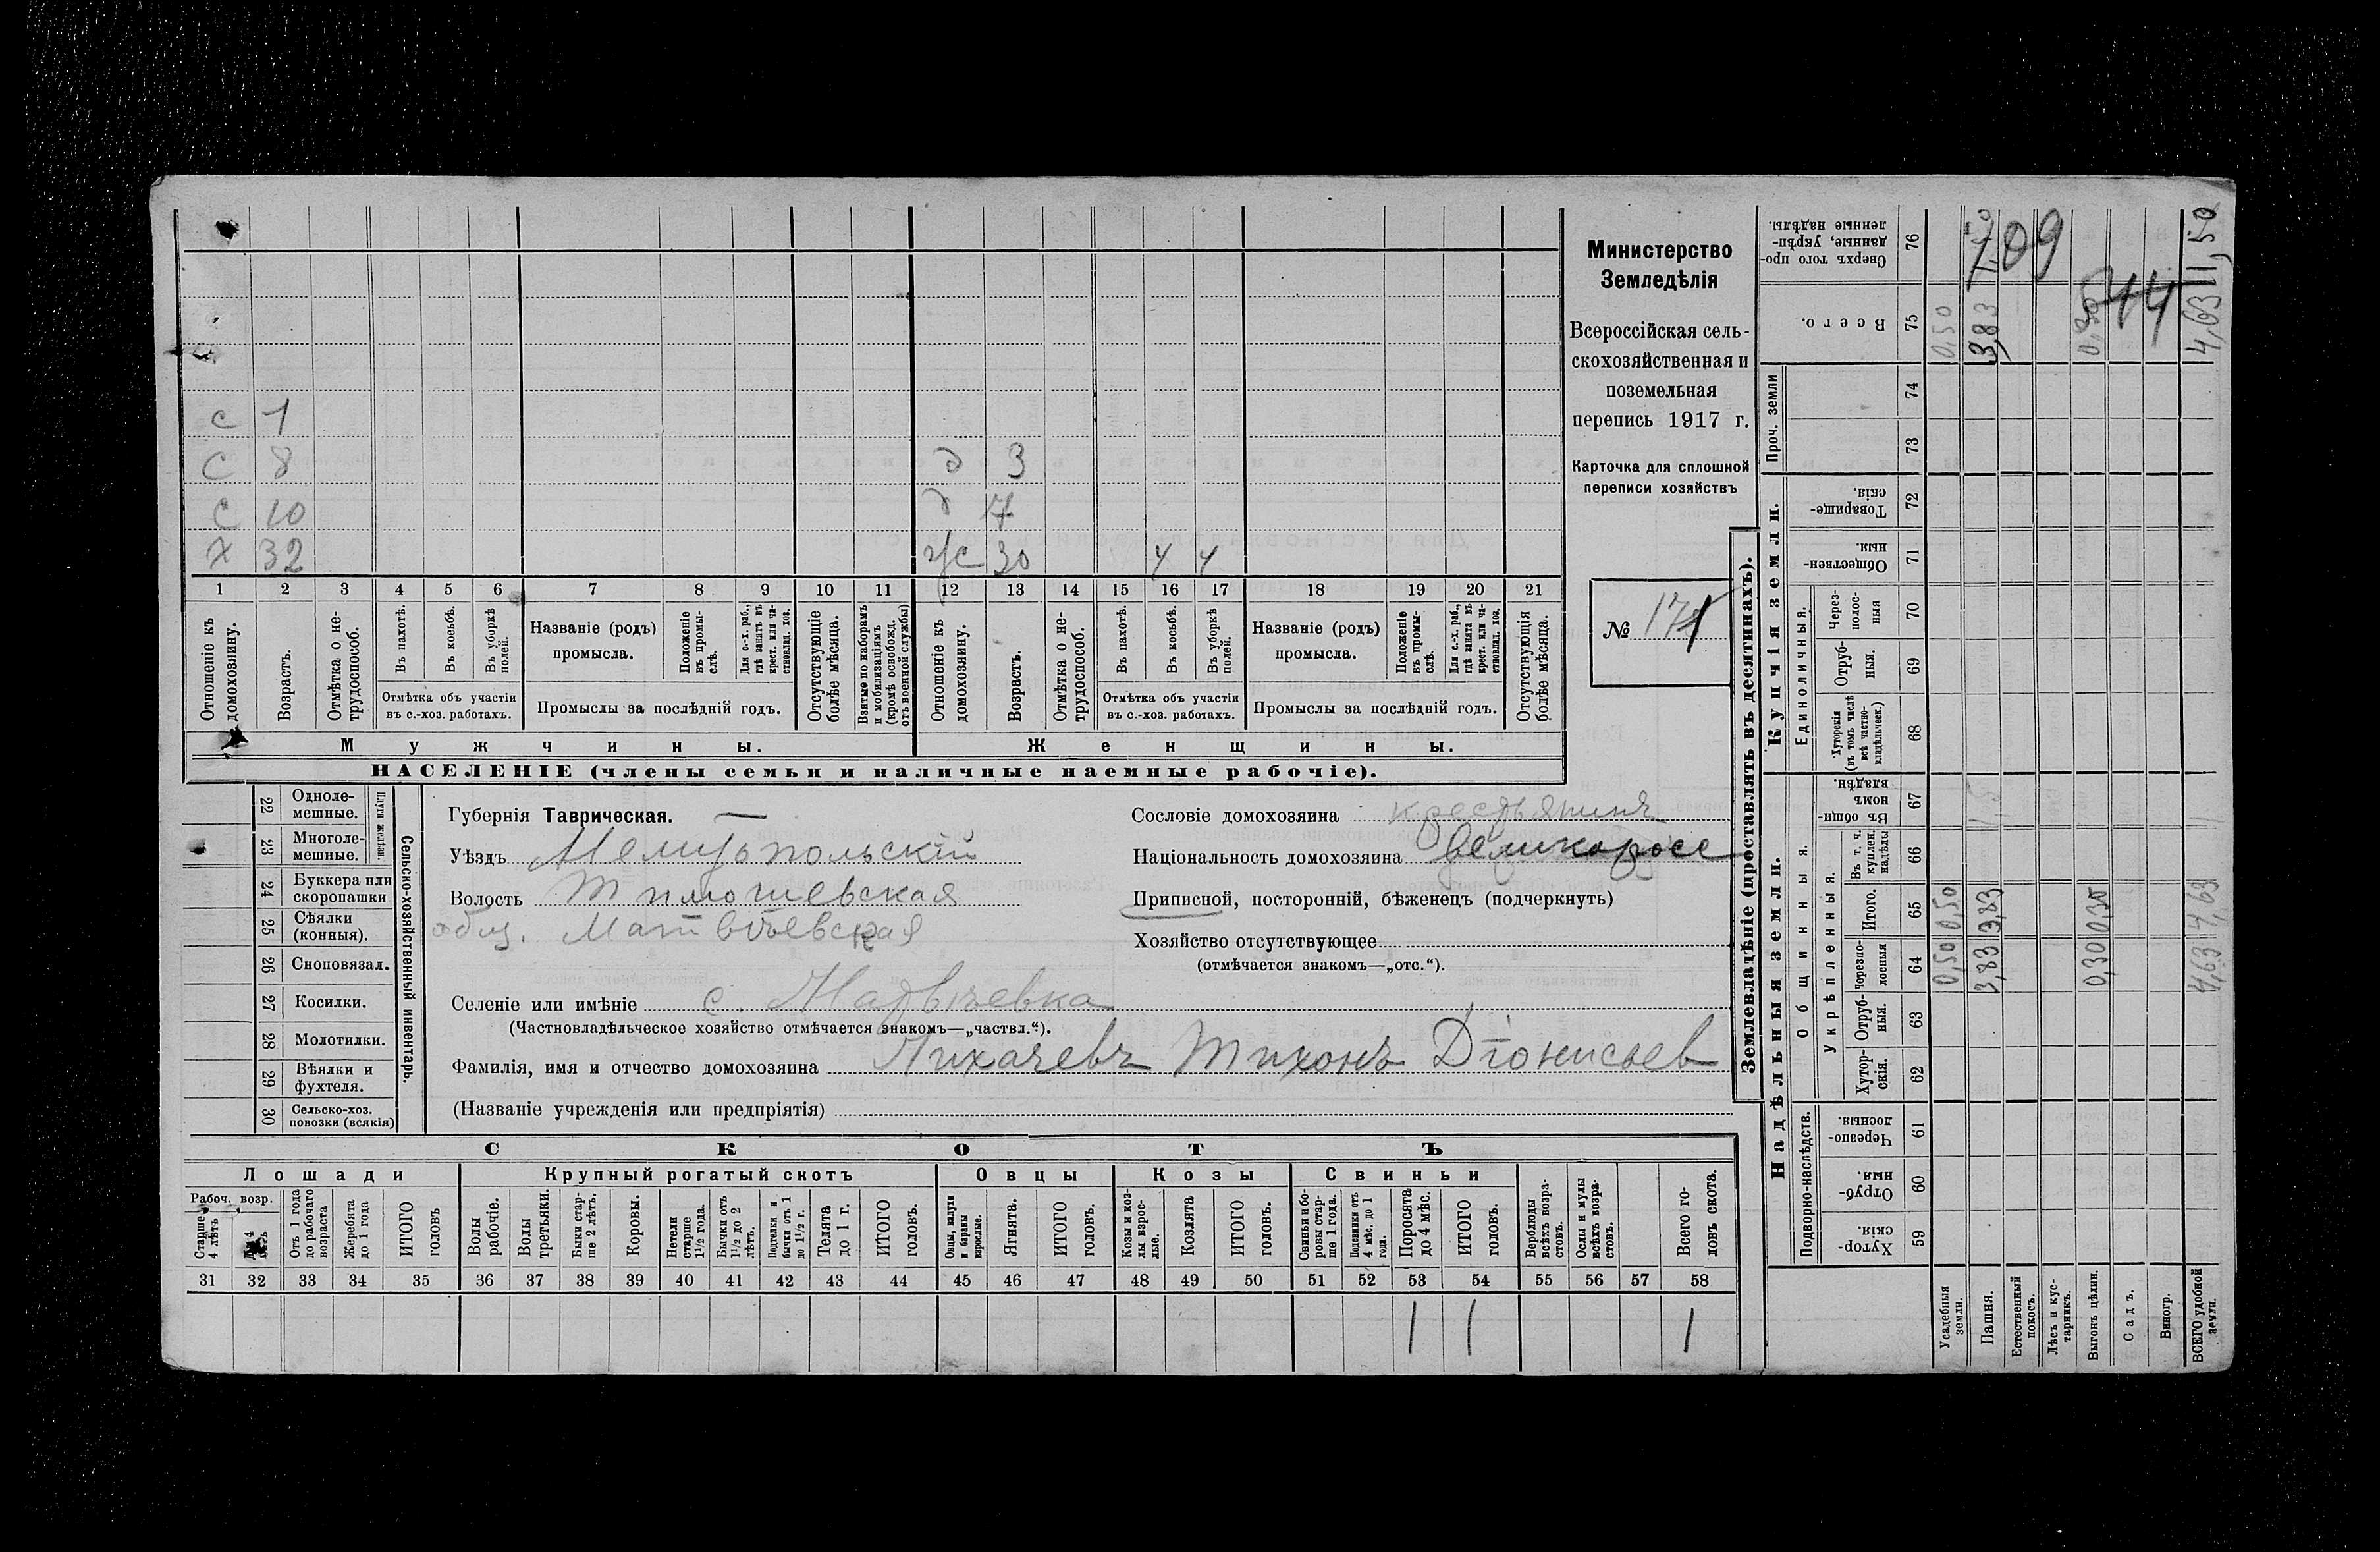 с 1
с 8 д 3
с 10 д 7
х 32 ж 30 ч ч
1 2 3 4 5 6 7 8 9 10 11 12 13 14 15 16 17 18 19 20 21
Отношеніе къ домохозяину.
Возрастъ.
Отмѣтка о не-
трудоспособ.
Въ пахотѣ.
Въ косьбѣ.
Въ уборкѣ полей.
Отмѣтка объ участіи
въ с.-хоз. работахъ.
Названіе (родъ)
промысла.
Положеніе въ промы-
слѣ.
Для с.-х. раб.,
гдѣ занятъ въ
крест. или ча-
стновлад. хоз.
Промыслы за послѣдній годъ.
Отсутствующіе
болѣе мѣсяца.
Взятые по наборамъ
и мобилизаціямъ
(кромѣ освобожд.
отъ военной службы)
Отношеніе къ
домохозяину.
Возрастъ.
Отмѣтка о не-
трудоспособ.
Въ пахотѣ.
Въ косьбѣ.
Въ уборкѣ
полей.
Отмѣтка объ участіи
въ с.-хоз. работахъ.
Названіе (родъ)
промысла.
Положеніе
въ промы-
слѣ.
Для с.-х. раб.,
гдѣ занята въ
крест. или ча-
стновлад. хоз.
Промыслы за послѣдній годъ.
Отсутствующія
болѣе мѣсяца.
Мужчины.
Женщины.
НАСЕЛЕНІЕ (члены семьи и наличные наемные рабочіе).
Министерство
Земледѣлія
Всероссійская сель-
скохозяйственная и
поземельная
перепись 1917 г.
Карточка для сплошной
переписи хозяйствъ
№ 171
Сельско-хозяйственный инвентарь.
Плуги желѣзн.
22 Одноле-
мешные.
23 Многоле-
мешные.
24 Буккера или
скоропашки
25 Сѣялки
(конныя).
26 Сноповязал.
27 Косилки.
28 Молотилки.
29 Вѣялки и
фухтеля.
30 Сельско-хоз.
повозки (всякія)
Губернія Таврическая.
Уѣздъ Мелитопольскій
Волость Тимошевская
общ. Матвѣевская
Селеніе или имѣніе с. Матвѣевка
(Частновладѣльческое хозяйство отмѣчается знакомъ—„частвл.“).
Фамилія, имя и отчество домохозяина Лихачевъ Тихонъ Діонисьев
(Названіе учрежденія или предпріятія)
Сословіе домохозяина крестьянинъ
Національность домохозяина великоросс
Приписной, посторонній, бѣженецъ (подчеркнуть)
Хозяйство отсутствующее
(отмѣчается знакомъ—„отс.“).
СКОТЪ
Лошади
Крупный рогатый скотъ
Овцы
Козы
Свиньи
Рабоч. возр.
Старше
4 лѣтъ
Отъ 1 года
до рабочаго
возраста
Жеребята
до 1 года
ИТОГО
головъ
Волы
рабочіе.
Волы
третьяки.
Быки стар-
ше 2 лѣтъ.
Коровы.
Нетели
старше
1½ года.
Бычки отъ
1½ до 2
лѣтъ.
Подтелки и
бычки отъ 1
до 1½ г.
Телята
до 1 г.
ИТОГО
головъ.
Овцы, валухи
и бараны
взрослые.
Ягнята.
ИТОГО
головъ.
Козы и коз-
лы взрос-
лые.
Козлята
ИТОГО
головъ.
Свиньи и бо-
ровы стар-
ше 1 года.
Подсвинки отъ
4 мѣс. до 1
года.
Поросята
до 4 мѣс.
ИТОГО
головъ.
Верблюды
всѣхъ возра-
стовъ.
Ослы и мулы
всѣхъ возра-
стовъ.
Всего го-
ловъ скота.
31 32 33 34 35 36 37 38 39 40 41 42 43 44 45 46 47 48 49 50 51 52 53 54 55 56 57 58
1 1 1
Землевладѣніе (проставлять въ десятинахъ).
Надѣльныя земли.
Купчія земли.
Проч. земли
Подворно-наслѣдств.
Общинныя.
Укрѣпленныя.
Единоличныя.
Сверхъ того про-
данные, укрѣп-
ленные надѣлы.
76
Всего.
75
74
73
Товарище-
скія.
72
Обществен-
ныя.
71
Через-
полос-
ныя
70
Отруб-
ныя.
69
Хуторскія
(въ томъ числѣ
всѣ частно-
владѣльческ.)
68
Въ общин-
номъ
владѣн.
67
Въ т. ч.
куплен.
надѣлы
66
Итого.
65
Черезпо-
лосныя
64
Отруб-
ныя.
63
Хутор-
скія.
62
Черезпо-
лосныя
61
Отруб-
ныя.
60
Хутор-
скія.
59
Усадебныя
земли.
0,50 0,50 0,50
Пашня.
3,83 3,83 3,83
Естественный
покосъ.
Лѣсъ и кус-
тарникъ.
Выгонъ цѣлин.
0,30 0,30 0,30
Садъ.
Виногр.
ВСЕГО удобной
земли.
4,63 4,63 4,63 11,50
709
44